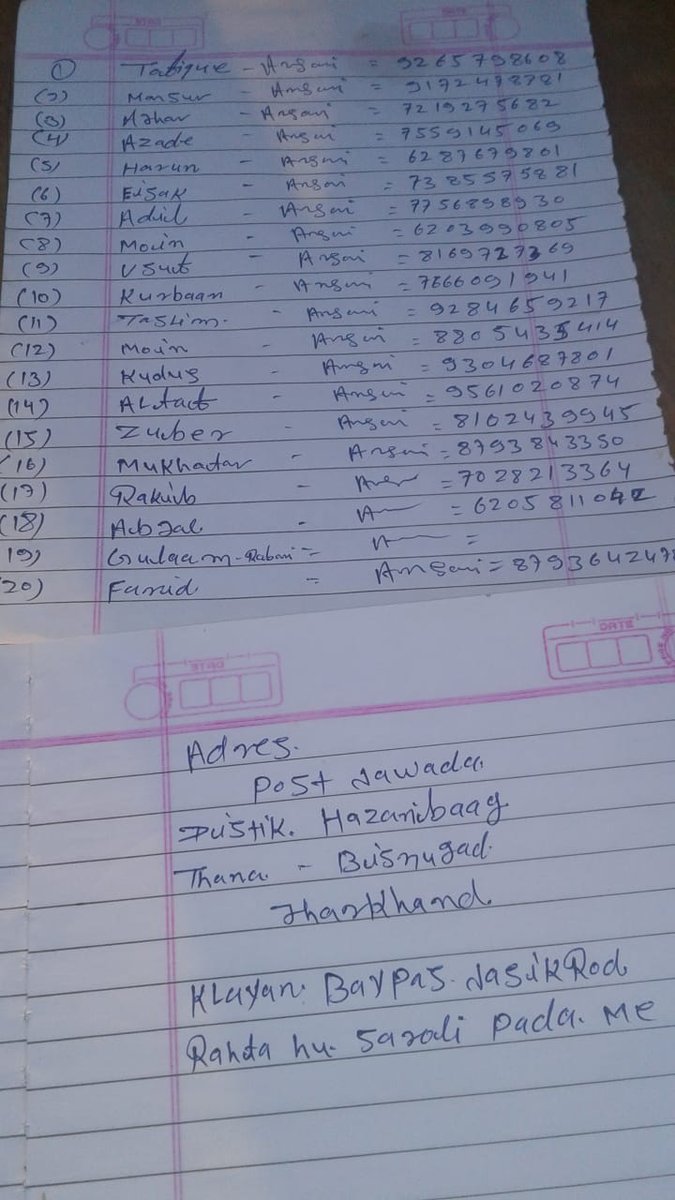 DATE DATE
(1) Tabique - Ansari = 9265798608
(2) Mansur - Ansari = 9172478781
(3) Azhar - Ansari = 7219275682
(4) Azade - Ansari = 7559145069
(5) Harun - Ansari = 6287679801
(6) Eisak - Ansari = 7385575881
(7) Adil - Ansari = 7756898930
(8) Moin - Ansari = 6203990805
(9) Usuf - Ansari = 8169727369
(10) Kurbaan - Ansari = 7666091941
(11) Taslim. - Ansari = 9284659217
(12) Moin - Ansari = 8805435414
(13) Kudus - Ansari = 9304687801
(14) Altaf - Ansari = 9561020874
(15) Zuber - Ansari = 8102439945
(16) Mukhadar - Ansari = 8793843350
(17) Rakib - Ansari = 7028213364
(18) Abjal - A = 6205811042
19) Gulaam-Rabani = A =
20) Farid = Ansari = 879364247
DATE DATE
Adres.
Post Nawada.
Distik. Hazaribaag
Thana - Bisnugad.
Jharkhand.
Klayan. Baypas. Nasik Rod
Rahta hu. Sarali Pada. Me